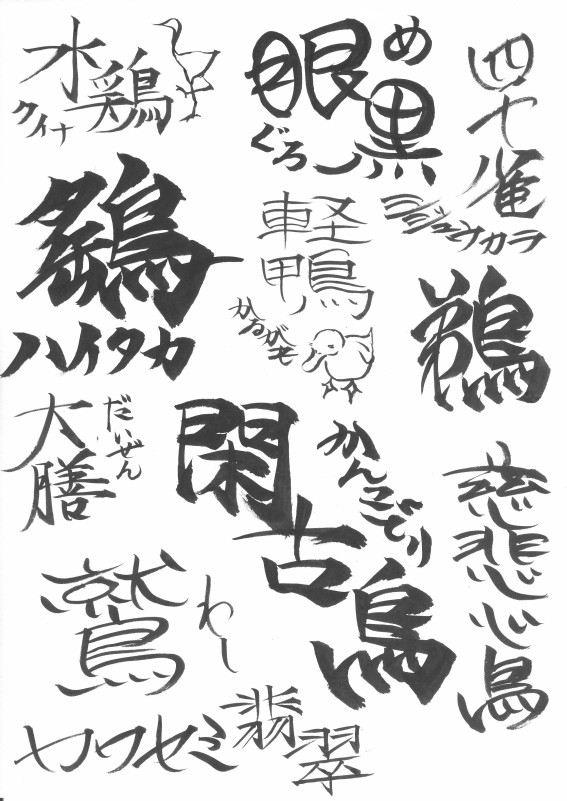 水鶏
クイナ
眼黒
めぐろ
四十雀
シジュウカラ
ハイタカ
軽鴨
かるがも
鵜
大膳
だいぜん
閑古鳥
かんこどり
慈悲心鳥
鷲
わし
カワセミ
翡翠